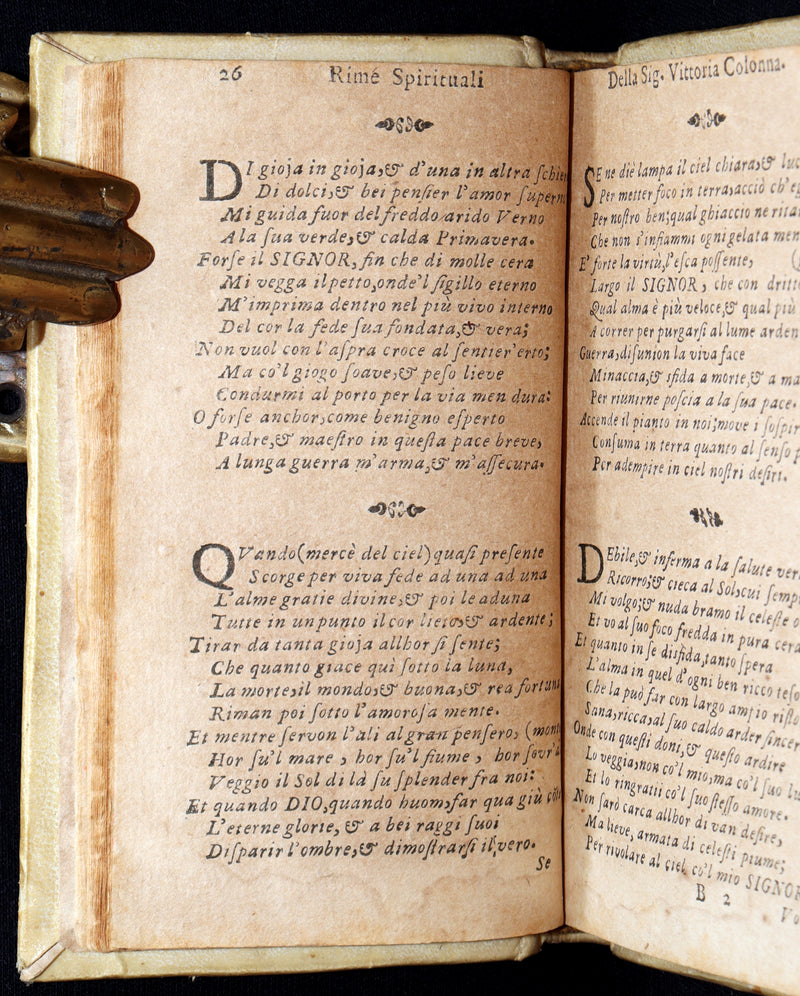 26 Rime Spirituali
DI gioja in gioja,& d'una in altra ſchie
Di dolci,& bei penſier l'amor ſuperno
Mi guida fuor del freddo arido Verno
A la ſua verde,& calda Primavera.
Forſe il SIGNOR, fin che di molle cera
Mi vegga il petto, onde'l ſigillo eterno
M'imprima dentro nel più vivo interno
Del cor la fede ſua fondata,& vera;
Non vuol con l'aſpra croce al ſentier'erto;
Ma co'l giogo ſoave,& peſo lieve
Condurmi al porto per la via men dura:
O forſe anchor, come benigno eſperto
Padre,& maeſtro in queſta pace breve,
A lunga guerra m'arma,& m'aſſecura.
QVando (mercè del ciel) quaſi preſente
Scorge per viva fede ad una ad una
L'alme gratie divine,& poi le aduna
Tutte in un punto il cor lieto,& ardente;
Tirar da tanta gioja allhor ſi ſente;
Che quanto giace quì ſotto la luna,
La morte, il mondo,& buona,& rea fortuna
Riman poi ſotto l'amoroſa mente.
Et mentre ſervon l'ali al gran penſero, (monte
Hor ſu'l mare, hor ſu'l fiume, hor ſovr'a
Veggio il Sol di là ſu ſplender fra noi:
Et quando DIO, quando huom, far qua giù
L'eterne glorie, & a bei raggi ſuoi
Diſparir l'ombre,& dimoſtrarſi il vero.
Se
Della Sig. Vittoria Colonna.
SE ne diè lampa il ciel chiara,& luc
Per metter foco in terra, acciò ch'eg
Per noſtro ben; qual ghiaccio ne ritar
Che non s'infiammi ogni gelata men
E' forte la virtù, l'eſca poſſente, (
Largo il SIGNOR, che con dritto
Qual alma è più veloce,& qual più
A correr per purgarſi al lume arden
Guerra, diſunion la viva face
Minaccia,& sfida a morte,& a ma
Per riunirne poſcia a la ſua pace.
Accende il pianto in noi; move i ſoſpir
Conſuma in terra quanto al ſenſo p
Per adempire in ciel noſtri deſiri.
DEbile,& inferma a la ſalute ver
Ricorro;& cieca al Sol, cui ſemp
Mi volgo;& nuda bramo il celeſte o
Et vo al ſuo foco fredda in pura cera
Et quanto in ſe disfida, tanto ſpera
L'alma in quel d'ogni ben ricco teſo
Che la può far con largo ampio riſto
Sana, ricca, al ſuo caldo arder ſincer
Onde con queſti doni,& queſto ardire
Lo veggia, non co'l mio, ma co'l ſuo lu
Et lo ringratii co'l ſuo ſteſſo amore.
Non ſarò carca allhor di van deſire,
Ma lieve, armata di celeſti piume;
Per rivolare al ciel co'l mio SIGNOR
B 2
Vo